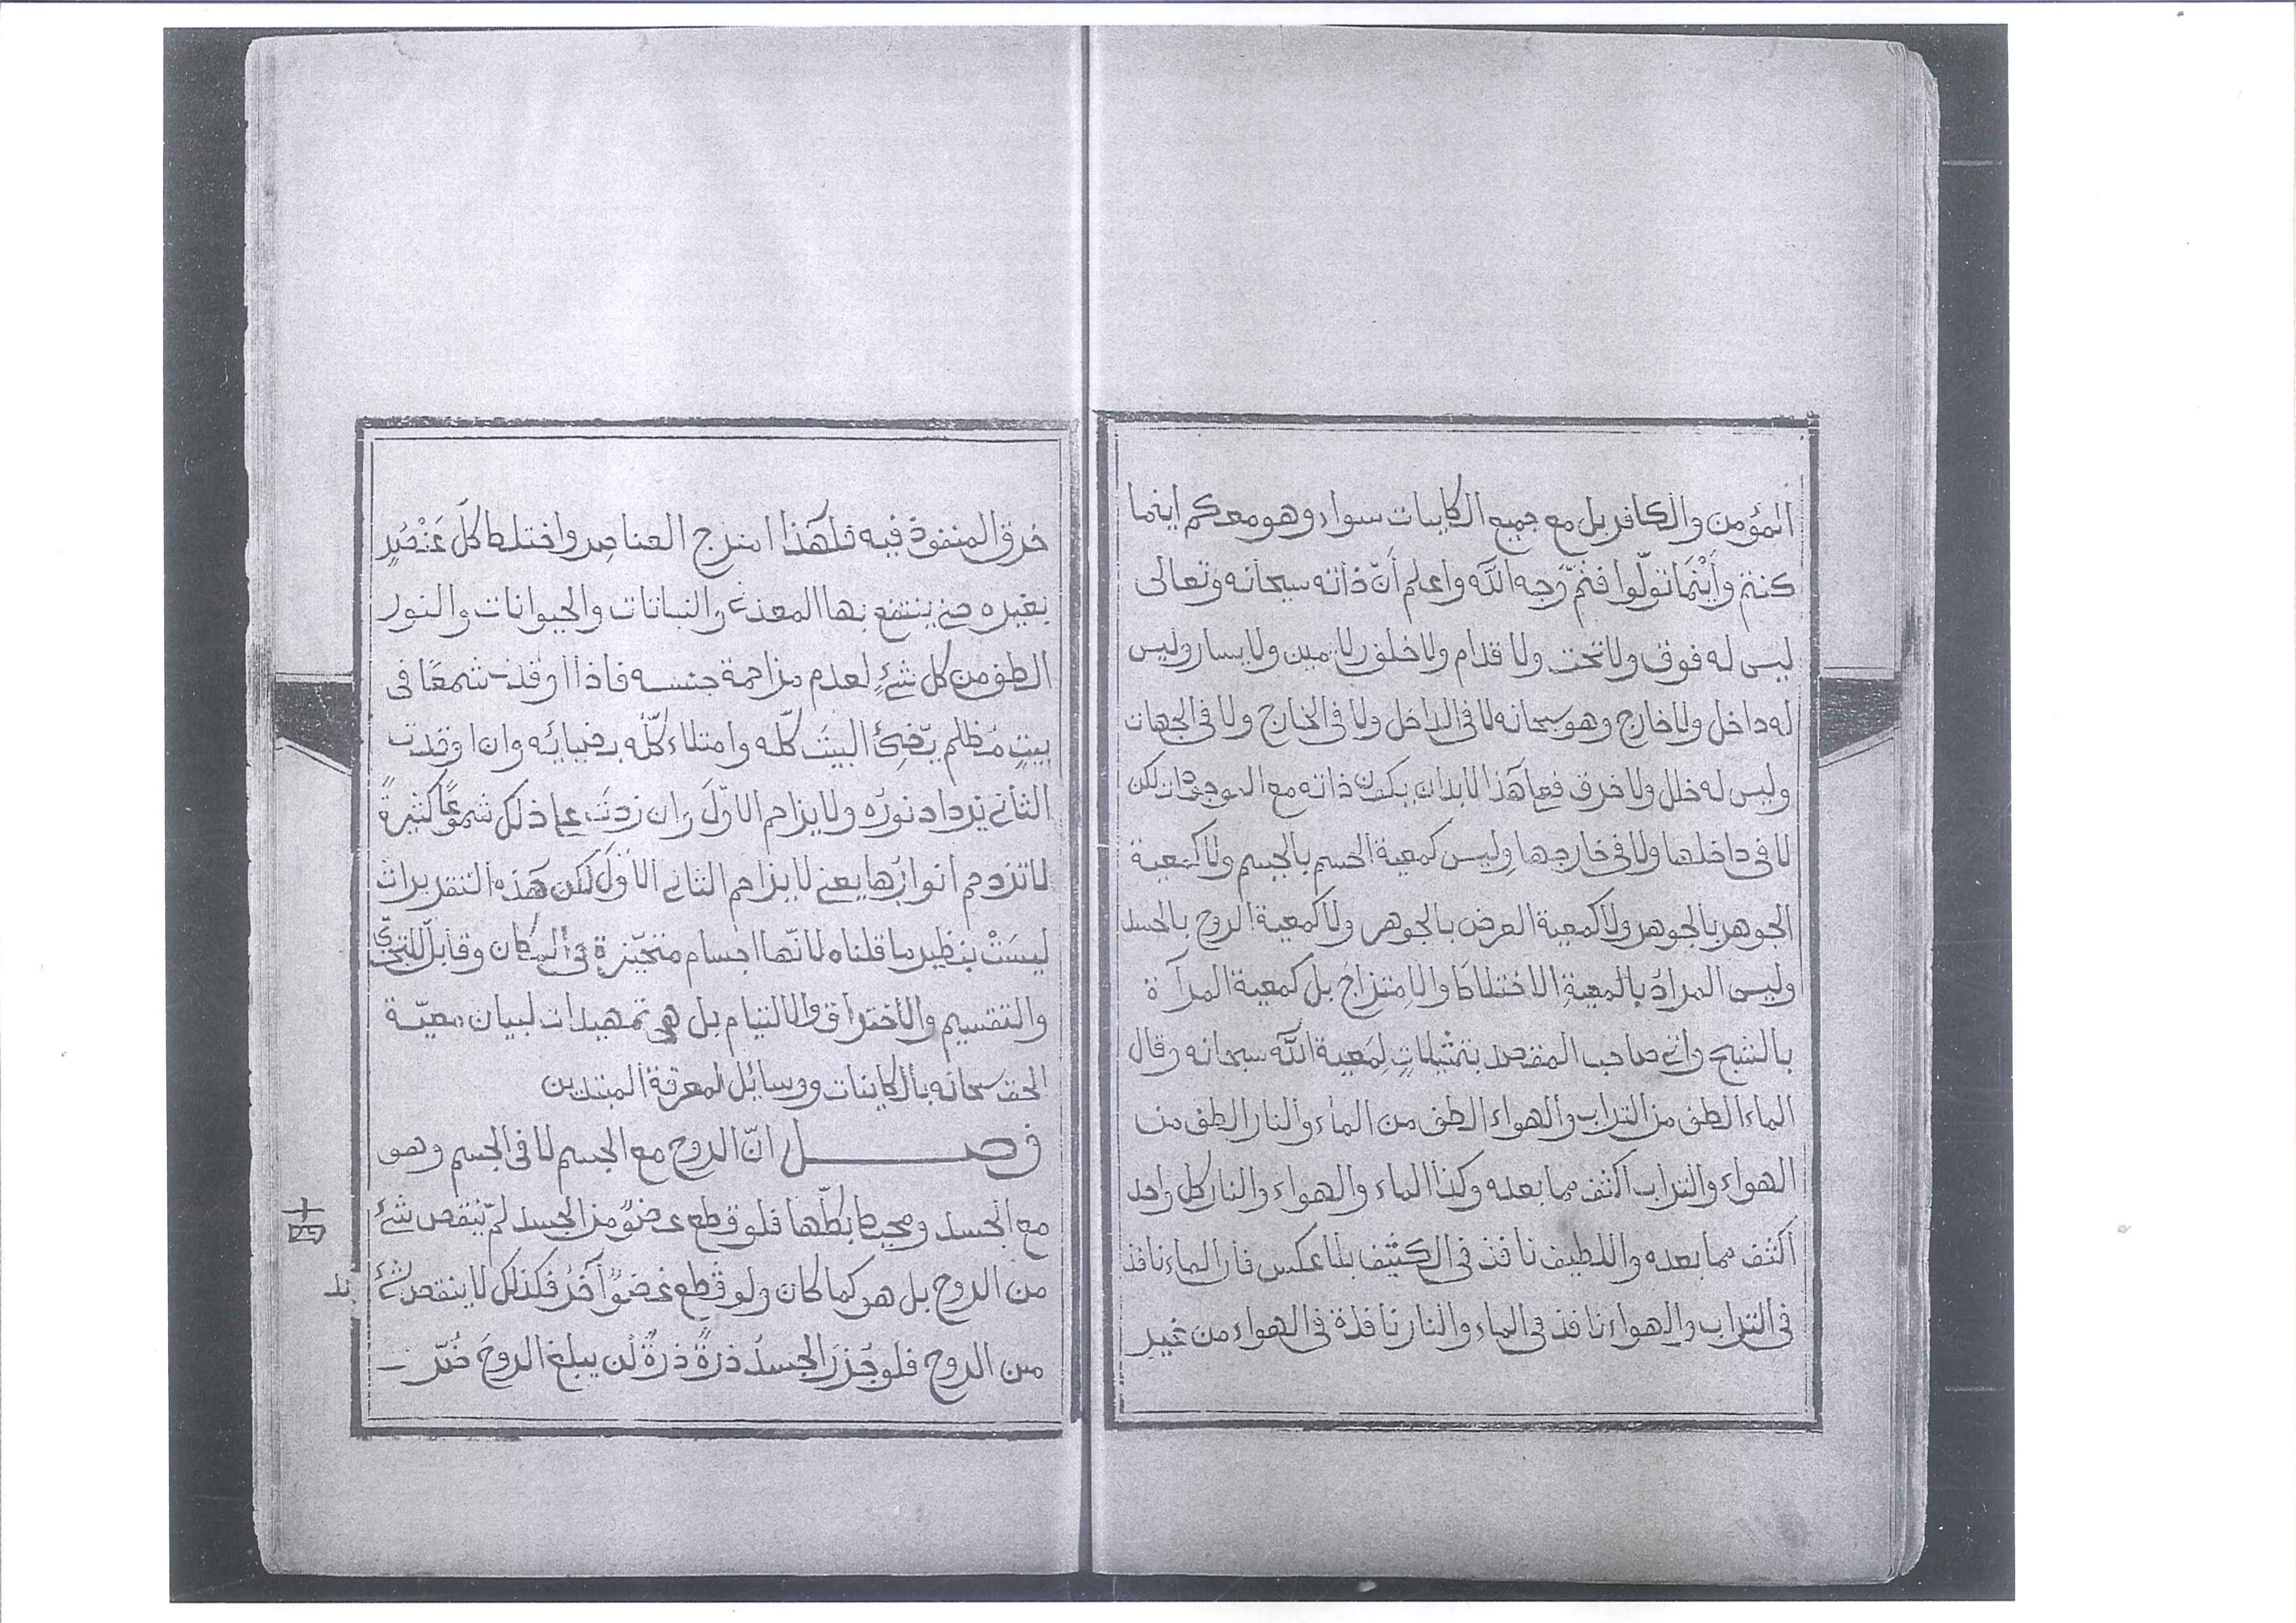 المؤمن والكافر بل مع جميع الكاينات سواء وهو معكم اينما
كنتم وأَيْنَمَا تولّوا فثمّ وَجه الله واعلم أَنّ ذاته سبحانه وتعالى
ليس له فوق ولا تحت ولا قدام ولا خلف ولا يمين ولا يسار وليس
له داخل ولا خارج وهو سبحانه لا فى الداخل ولا فى الخارج ولا فى الجهات
وليس له خلل ولا خرق فعلى هذا لابد ان يكون ذاته مع الموجودات لكن
لا فى داخلها ولا فى خارجها وليس كمعية الجسم بالجسم ولا كمعية
الجوهر بالجوهر ولا كمعية العرض بالجوهر ولا كمعية الروح بالجسد
وليس المرادُ بالمعيةِ الاختلاطَ والامتزاجَ بل كمعية المرآة
بالشبح واتى صاحب المقصد بتمثيلاتٍ لِمَعية الله سبحانه وقال
الماء الطف من التراب والهواء الطف من الماء والنار الطف من
الهواء والتراب اكثف مما بعده وكذا الماء والهواء والنار كل واحد
اكثف مما بعده واللطيف نافذ فى الكثيف بلا عكس فان الماء نافذ
فى التراب والهواء نافذ فى الماء والنار نافذة فى الهواء من غير
خرق المنفوذ فيه فلهَذا امتزج العناصر واختلط كلّ عَنْصُرٍ
بغيره حتى ينتفع بها المعدن والنباتات والحيوانات والنور
الطف من كل شئٍ لعدم مزاحمة جنسه فاذا اوقدت شمعًا فى
بيتٍ مُظلم يّضِئُ البيتَ كلّه وامتلاء كلّه بضيائه وان اوقدت
الثانى يزداد نورُه ولا يزاحم الاوّلَ وان زدتَ على ذلك شموعًا كثيرةً
لا تزدحم انوارُها يعنى لا يزاحم الثانى الاوّلَ لكن هَذه التقريرات
ليسَتْ بنظير ما قلناه لانّها اجسام متحيّزة فى المكان وقابل للتجزّى
والتقسيم والاختراق والالتيام بل هى تمهيدات لبيان معيّة
الحق سبحانه بالكاينات ووسائل لمعرفة المبتدين
فصل انّ الروح مع الجسم لا فى الجسم وهو
مع الجسد ومحيط بكلّها فلو قطع عضوٌ من الجسد لم ينقص شئ
من الروح بل هو كما كان ولو قُطع عضوٌ آخرُ فكذلك لا ينقص شئ
من الروح فلو جُزّرَ الجسدُ ذرةً ذرةً لن يبلغ الروحَ ضُرّ
十四